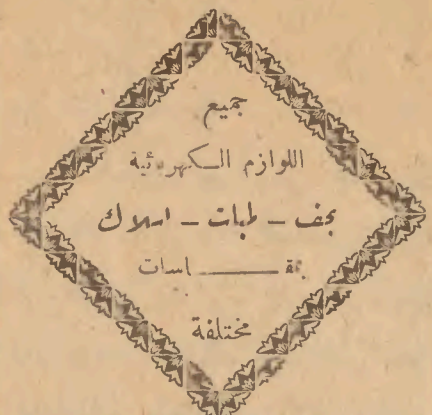 جميع
اللوازم الكهربائية
نجف - لمبات - اسلاك
بمقـــاسات
مختلفة